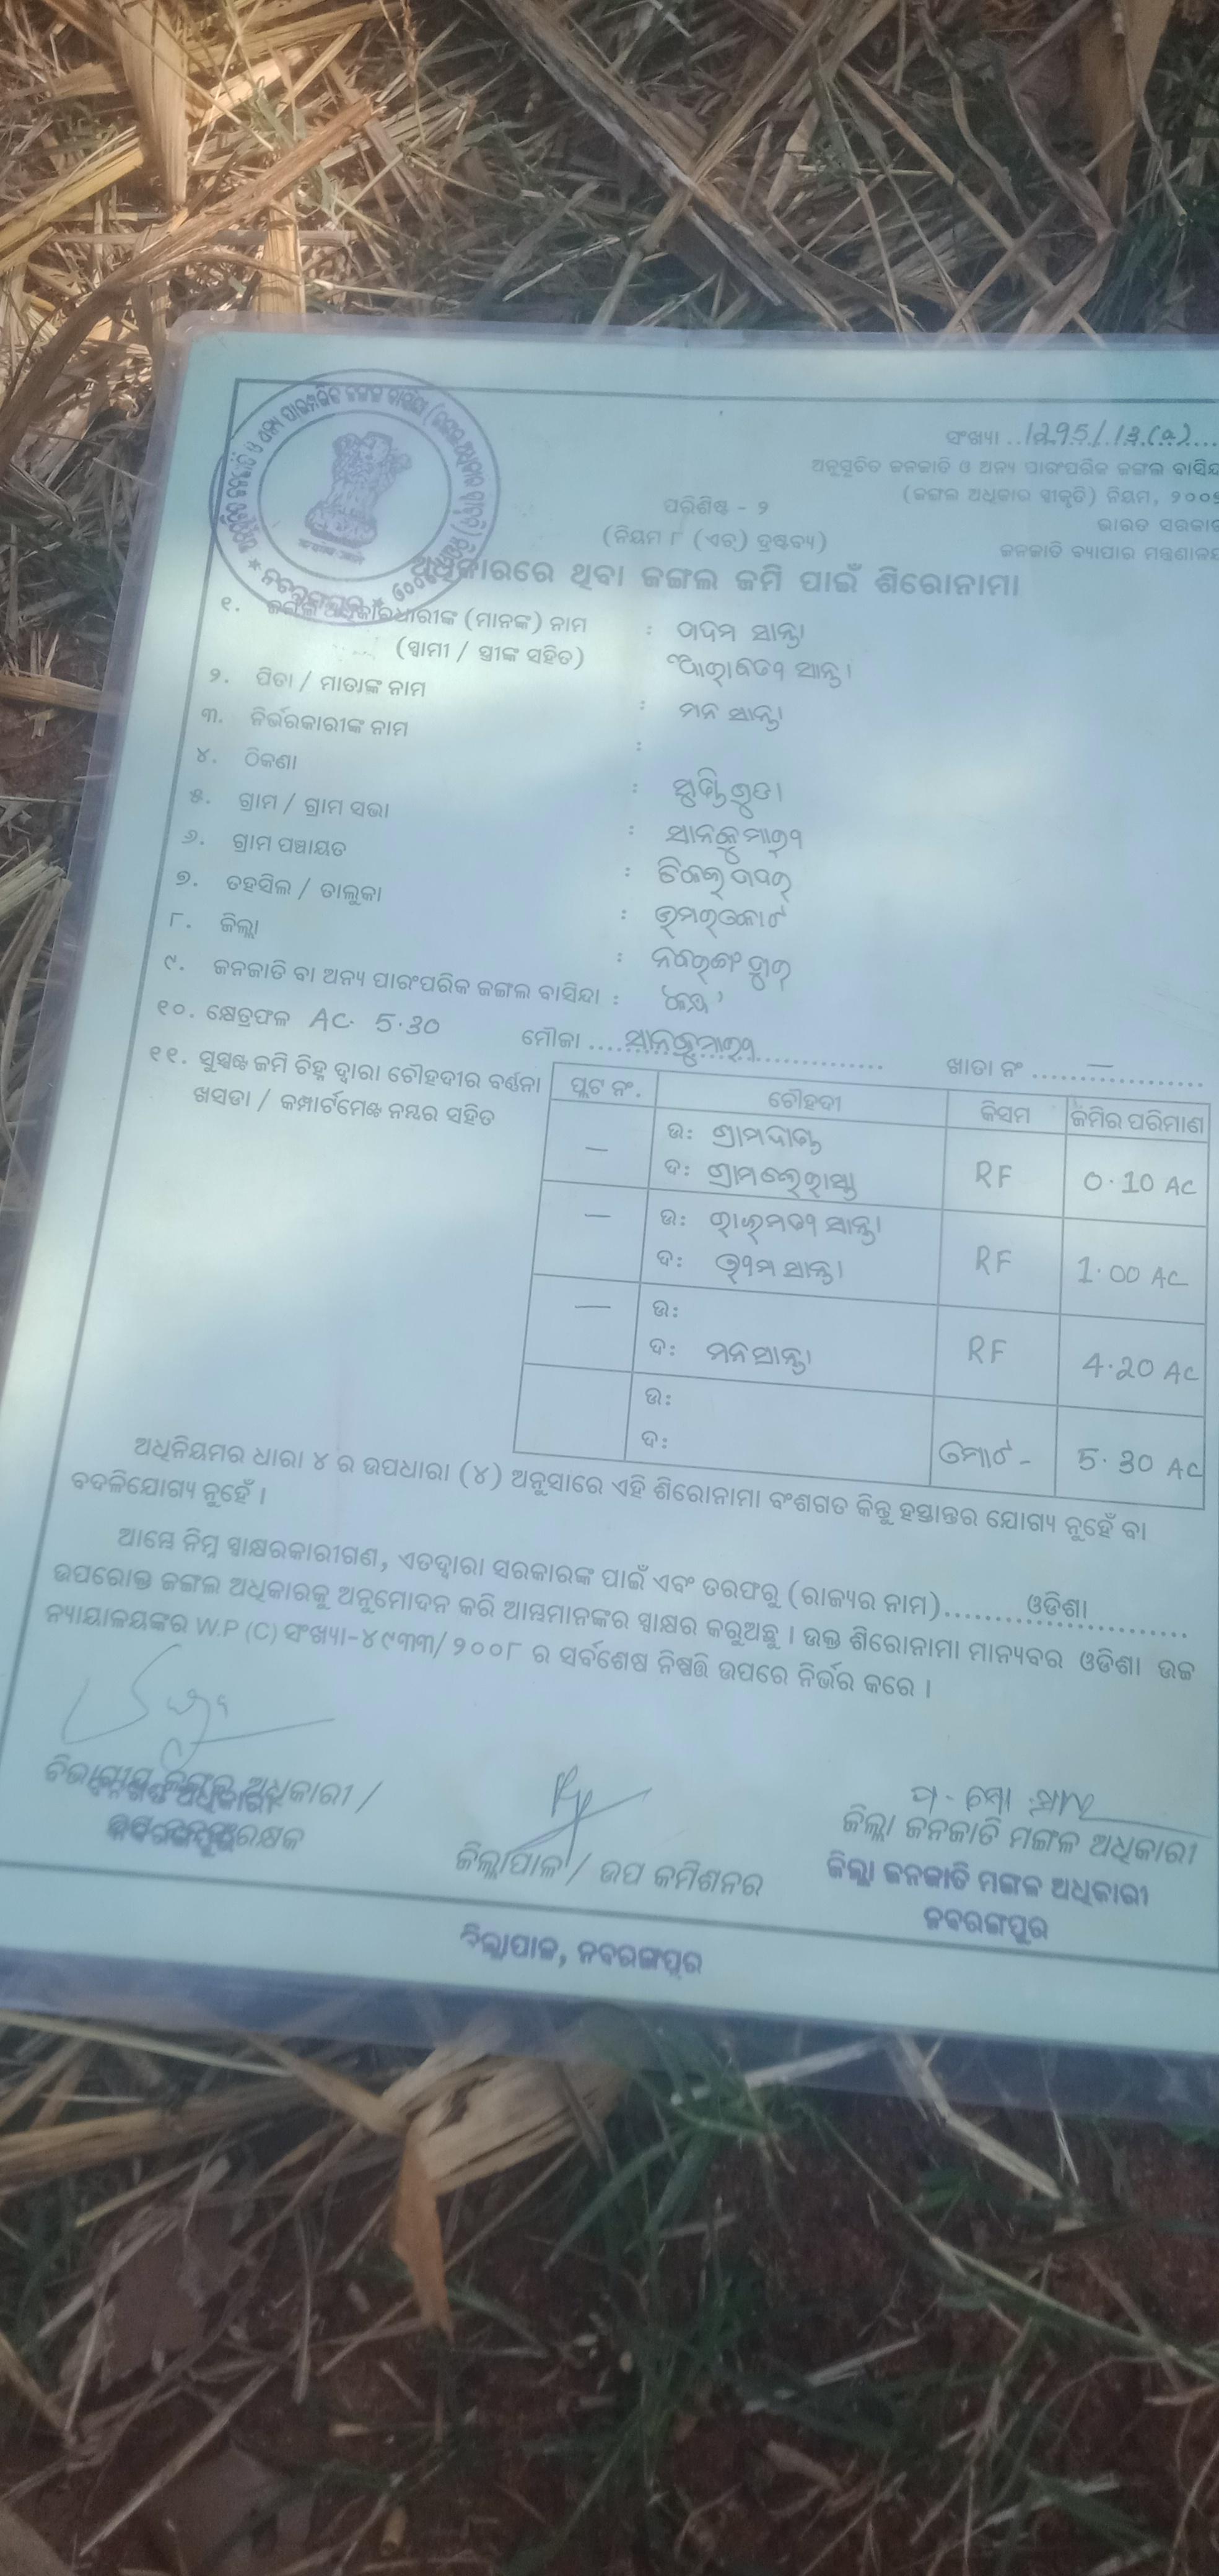 ସଂଖ୍ୟା ..1295/13(a)....
ଅନୁସୂଚିତ ଜନଜାତି ଓ ଅନ୍ୟ ପାରଂପରିକ ଜଙ୍ଗଲ ବାସିନ୍ଦା
(ଜଙ୍ଗଲ ଅଧିକାର ସ୍ୱୀକୃତି) ନିୟମ, ୨୦୦
ଭାରତ ସରକାର
ଜନଜାତି ବ୍ୟାପାର ମନ୍ତ୍ରଣାଳୟ
ପରିଶିଷ୍ଟ - ୨
(ନିୟମ ୮ (ଏଚ୍) ଦ୍ରଷ୍ଟବ୍ୟ)
ଅଧିକାରରେ ଥିବା ଜଙ୍ଗଲ ଜମି ପାଇଁ ଶିରୋନାମା
୧. ଜଙ୍ଗଲ ଅଧିକାରଧାରୀଙ୍କ (ମାନଙ୍କ) ନାମ :
(ସ୍ୱାମୀ / ସ୍ତ୍ରୀଙ୍କ ସହିତ) ସାନ୍ତା
୨. ପିତା / ମାତାଙ୍କ ନାମ : ମନ ସାନ୍ତା
୩. ନିର୍ଭରକାରୀଙ୍କ ନାମ :
୪. ଠିକଣା :
୫. ଗ୍ରାମ / ଗ୍ରାମ ସଭା :
୬. ଗ୍ରାମ ପଞ୍ଚାୟତ :
୭. ତହସିଲ / ତାଲୁକା : ଉମରକୋଟ
୮. ଜିଲ୍ଲା : ନବରଂଗପୁର
୯. ଜନଜାତି ବା ଅନ୍ୟ ପାରଂପରିକ ଜଙ୍ଗଲ ବାସିନ୍ଦା :
୧୦. କ୍ଷେତ୍ରଫଳ AC. 5.30 ମୌଜା .... ଖାତା ନଂ ....—....
୧୧. ସୁସ୍ପଷ୍ଟ ଜମି ଚିହ୍ନ ଦ୍ୱାରା ଚୌହଦୀର ବର୍ଣ୍ଣନା
ଖସଡା / କମ୍ପାର୍ଟମେଣ୍ଟ ନମ୍ବର ସହିତ
ପ୍ଲଟ ନଂ. ଚୌହଦୀ କିସମ ଜମିର ପରିମାଣ
— ଉ: RF 0.10 AC
ଦ:
— ଉ: ସାନ୍ତା RF 1.00 AC
ଦ: ସାନ୍ତା
— ଉ: RF 4.20 AC
ଦ: ମନ ସାନ୍ତା
ଉ:
ଦ: ମୋଟ - 5.30 AC
ଅଧିନିୟମର ଧାରା ୪ ର ଉପଧାରା (୪) ଅନୁସାରେ ଏହି ଶିରୋନାମା ବଂଶଗତ କିନ୍ତୁ ହସ୍ତାନ୍ତର ଯୋଗ୍ୟ ନୁହେଁ ବା
ବଦଳିଯୋଗ୍ୟ ନୁହେଁ ।
ଆମ୍ଭେ ନିମ୍ନ ସ୍ୱାକ୍ଷରକାରୀଗଣ, ଏତଦ୍ୱାରା ସରକାରଙ୍କ ପାଇଁ ଏବଂ ତରଫରୁ (ରାଜ୍ୟର ନାମ).......ଓଡିଶା.......
ଉପରୋକ୍ତ ଜଙ୍ଗଲ ଅଧିକାରକୁ ଅନୁମୋଦନ କରି ଆମ୍ଭମାନଙ୍କର ସ୍ୱାକ୍ଷର କରୁଅଛୁ । ଉକ୍ତ ଶିରୋନାମା ମାନ୍ୟବର ଓଡିଶା ଉଚ୍ଚ
ନ୍ୟାୟାଳୟଙ୍କର W.P (C) ସଂଖ୍ୟା-୪୯୩୩/୨୦୦୮ ର ସର୍ବଶେଷ ନିଷ୍ପତ୍ତି ଉପରେ ନିର୍ଭର କରେ ।
ବିଭାଗୀୟ ଜଙ୍ଗଲ ଅଧିକାରୀ /
ଜିଲ୍ଲାପାଳ / ଉପ କମିଶନର
ଜିଲ୍ଲା ଜନଜାତି ମଙ୍ଗଳ ଅଧିକାରୀ
ଜିଲ୍ଲା ଜନଜାତି ମଙ୍ଗଳ ଅଧିକାରୀ
ନବରଙ୍ଗପୁର
ଜିଲ୍ଲାପାଳ, ନବରଙ୍ଗପୁର